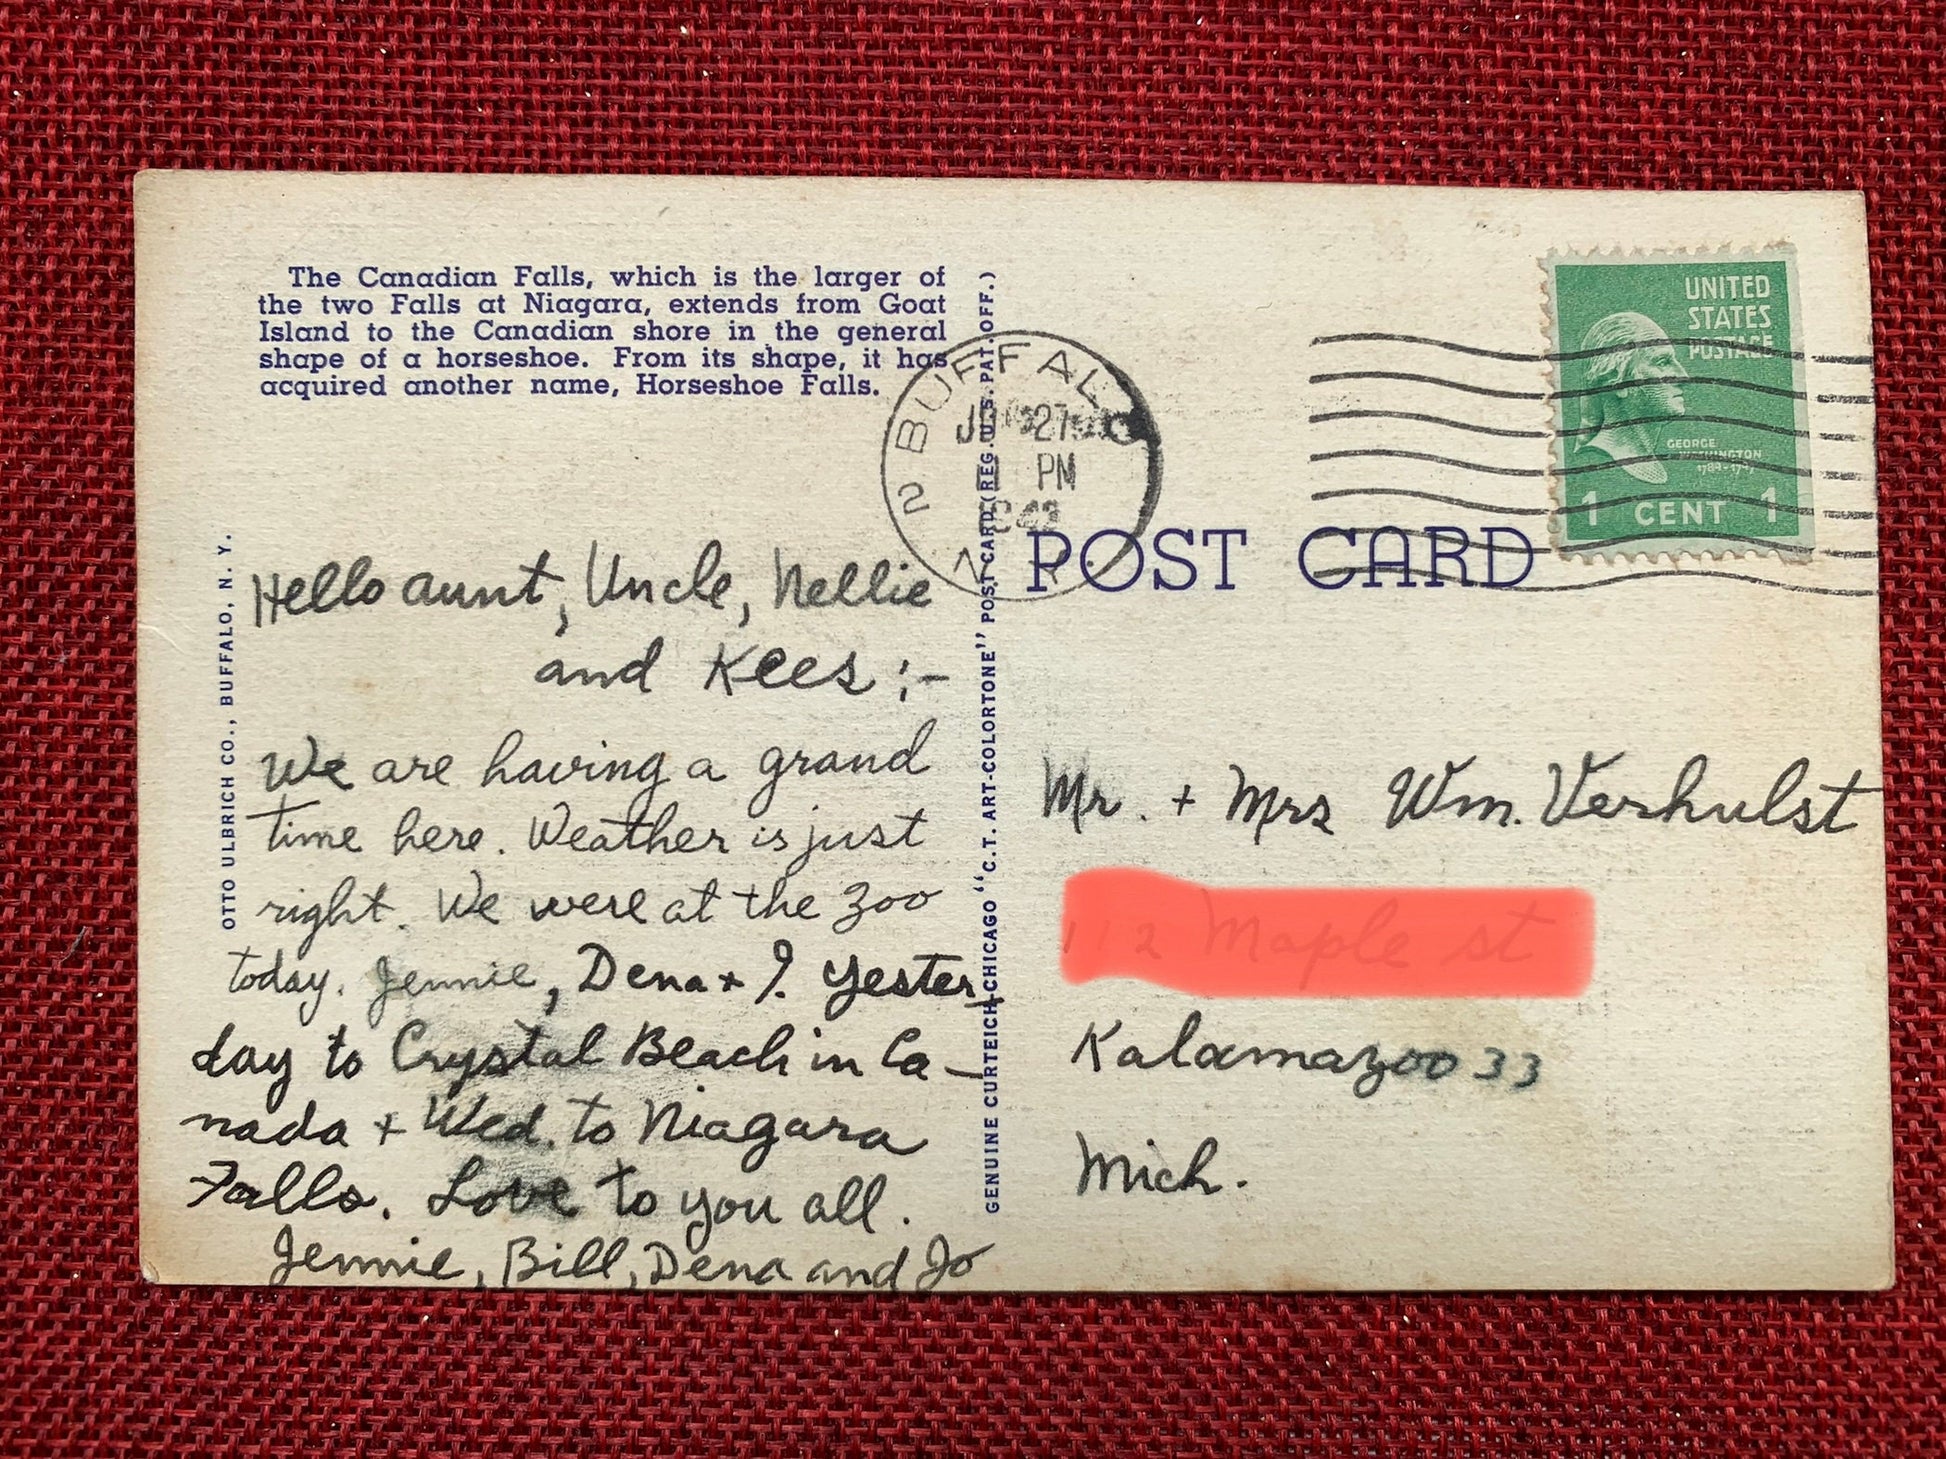 The Canadian Falls, which is the larger of
the two Falls at Niagara, extends from Goat
Island to the Canadian shore in the general
shape of a horseshoe. From its shape, it has
acquired another name, Horseshoe Falls.
OTTO ULBRICH CO., BUFFALO, N. Y.
Hello Aunt, Uncle, Nellie
and Kees :-
We are having a grand
time here. Weather is just
right. We were at the zoo
today. Jennie, Dena + I. Yester-
day to Crystal Beach in Ca-
nada + Wed. to Niagara
Falls. Love to you all.
Jennie, Bill, Dena and Jo
GENUINE CURTEICH-CHICAGO "C.T. ART-COLORTONE" POST CARD (REG. U.S. PAT. OFF.)
BUFFALO 2
27
PM
UNITED
STATES
POSTAGE
GEORGE
WASHINGTON
1789-1797
1 CENT 1
POST CARD
Mr. + Mrs Wm. Verhulst
112 Maple st
Kalamazoo 33
Mich.